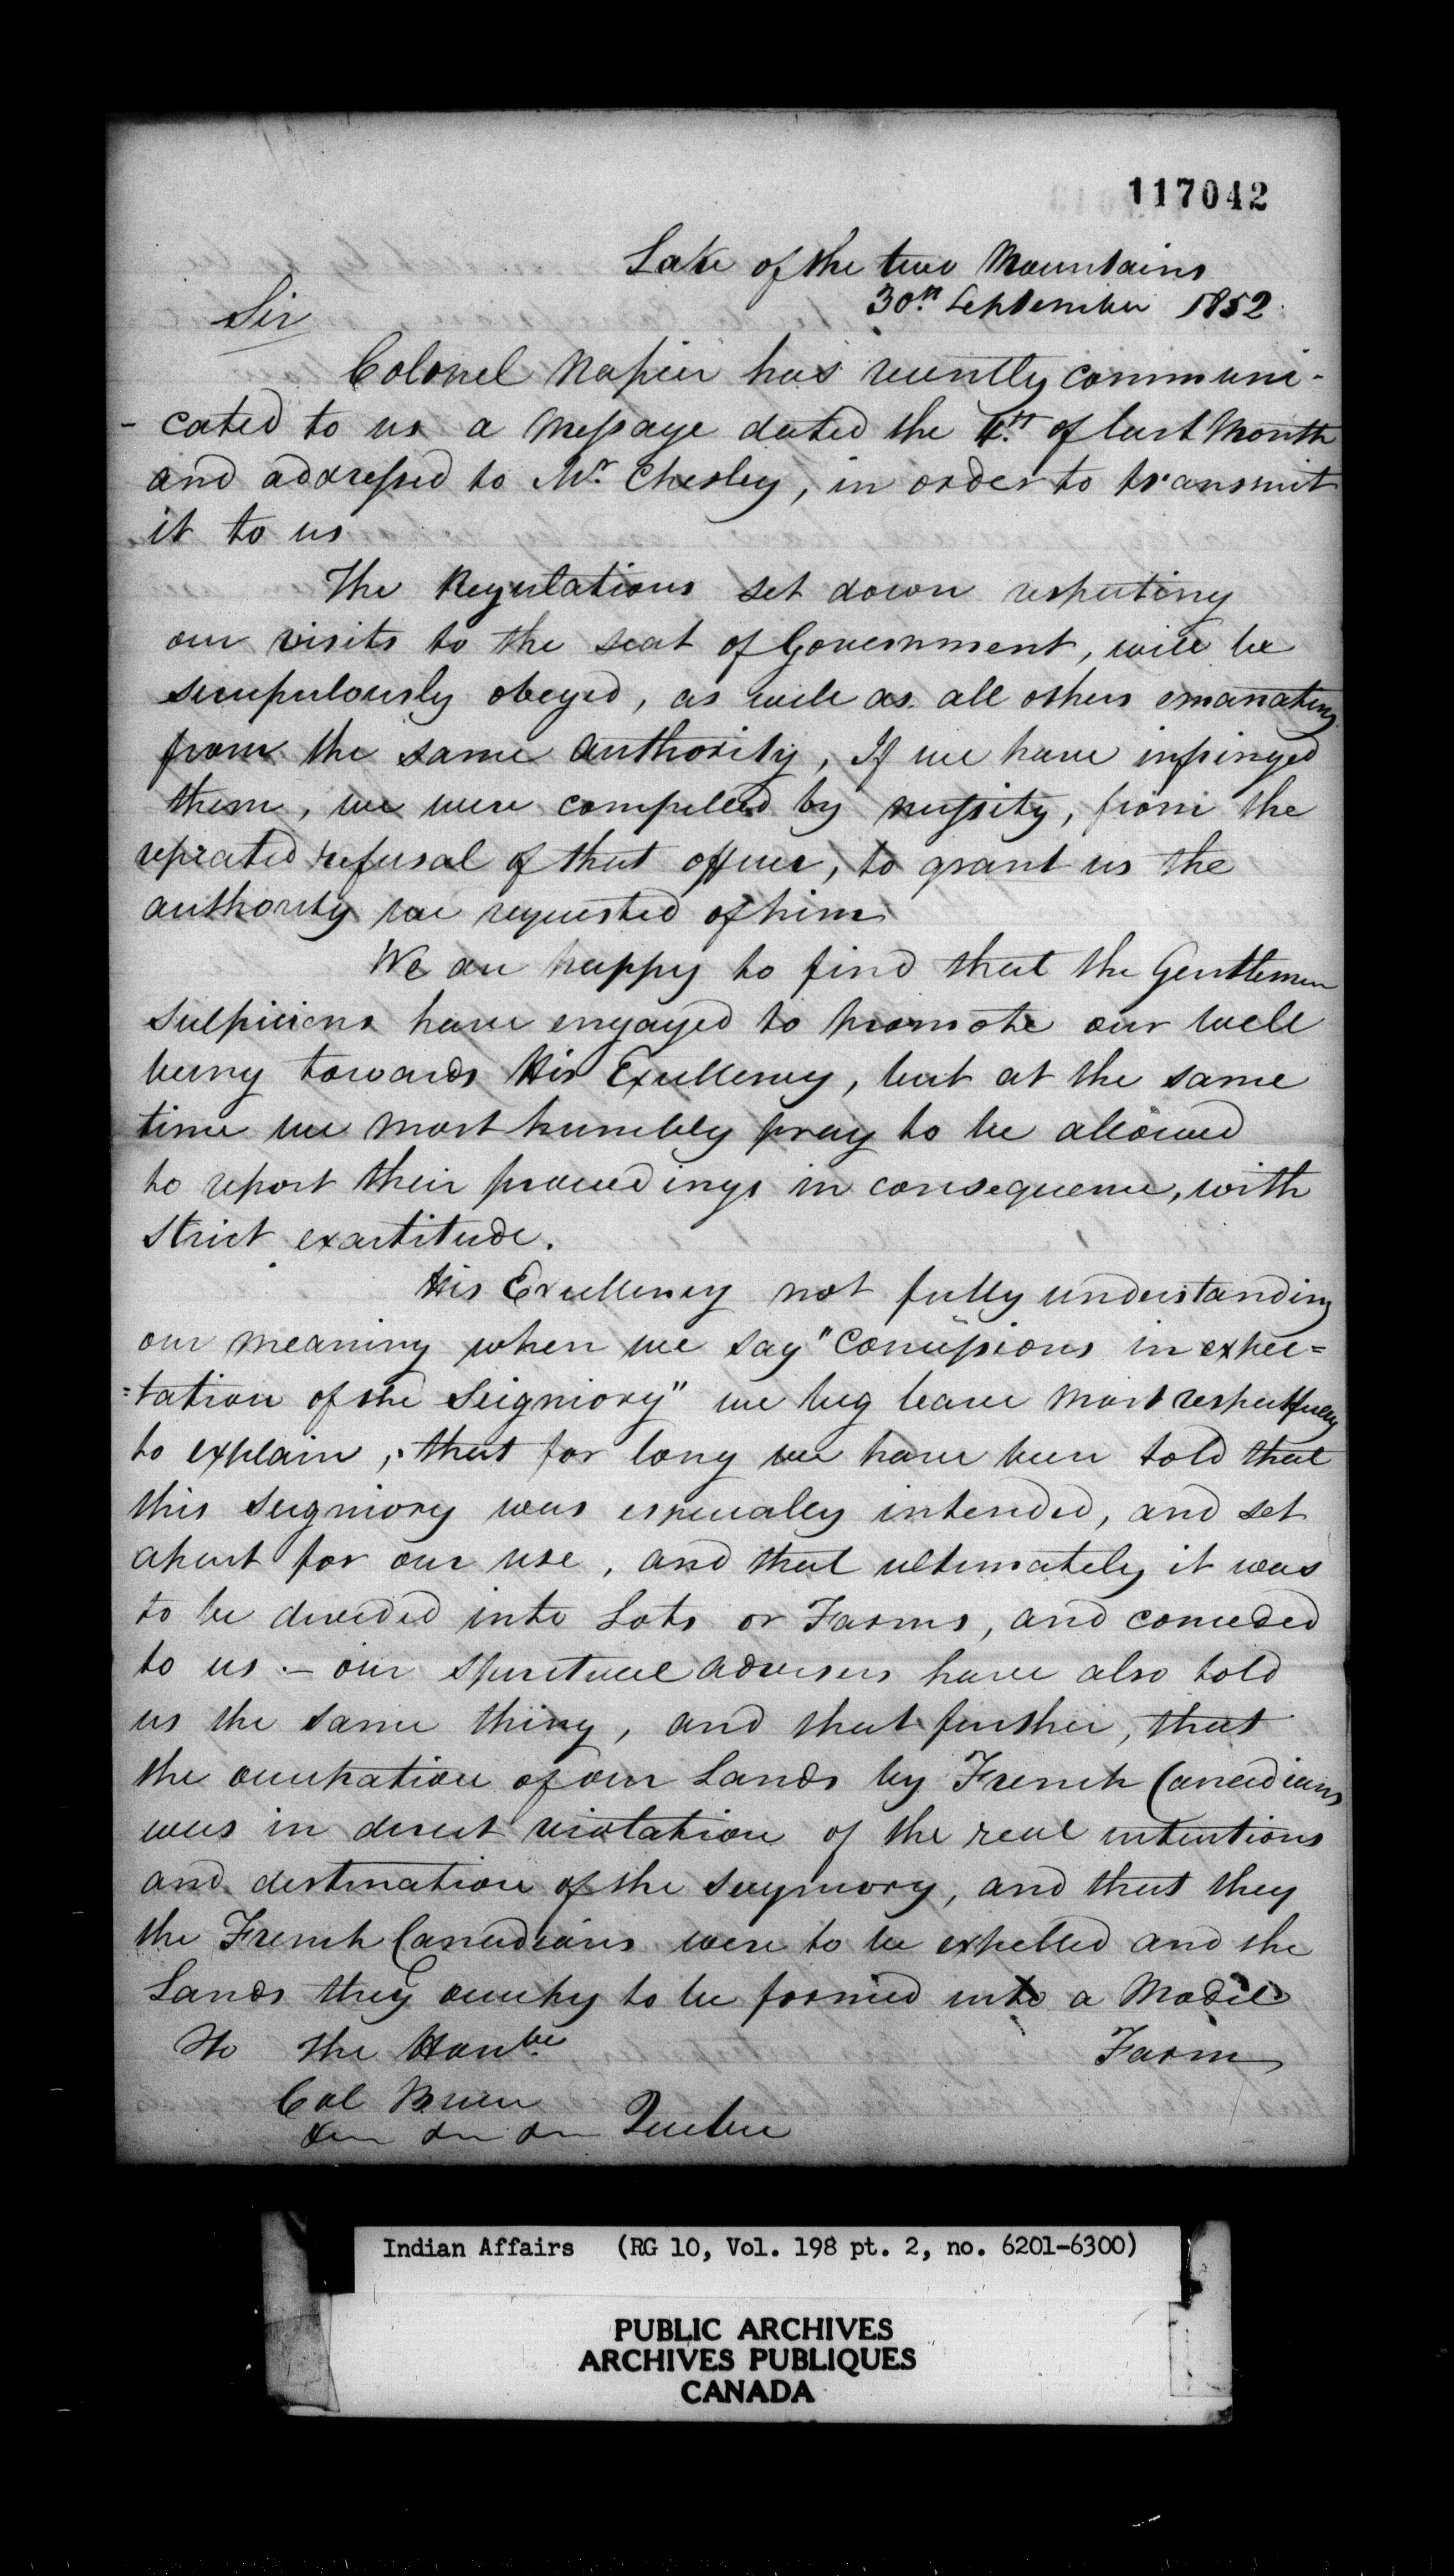 117042
Lake of the two Mountains
30th September 1852
Sir
Colonel Napier has recently communi-
-cated to us a Message dated the 4th of last Month
and addressed to Mr. Chesley, in order to transmit
it to us
The Regulations set down respecting
our visits to the seat of Government, will be
scrupulously obeyed, as well as all others emanating
from the same authority, If we have infringed
them, we were compelled by necessity, from the
repeated refusal of that officer, to grant us the
authority we requested of him
We are happy to find that the Gentlemen
Sulpicians have engaged to promote our well
being towards His Excellency, but at the same
time we most humbly pray to be allowed
to report their proceedings in consequence, with
strict exactitude.
His Excellency not fully understanding
our meaning when we say "Concessions in expec=
=tation of the Seigniory" we beg leave most respectfully
to explain, that for long we have been told that
this seigniory was especially intended, and set
apart for our use, and that ultimately it was
to be divided into Lots or Farms, and conceded
to us. - our spiritual advisers have also told
us the same thing, and that further, that
the occupation of our Lands by French Canadians
was in direct violation of the real intentions
and destination of the seigniory, and that they
the French Canadians were to be expelled and the
Lands they occupy to be formed into a Model
To the Honble
Farm
Col Bruce
Quebec
Indian Affairs (RG 10, Vol. 198 pt. 2, no. 6201-6300)
PUBLIC ARCHIVES
ARCHIVES PUBLIQUES
CANADA